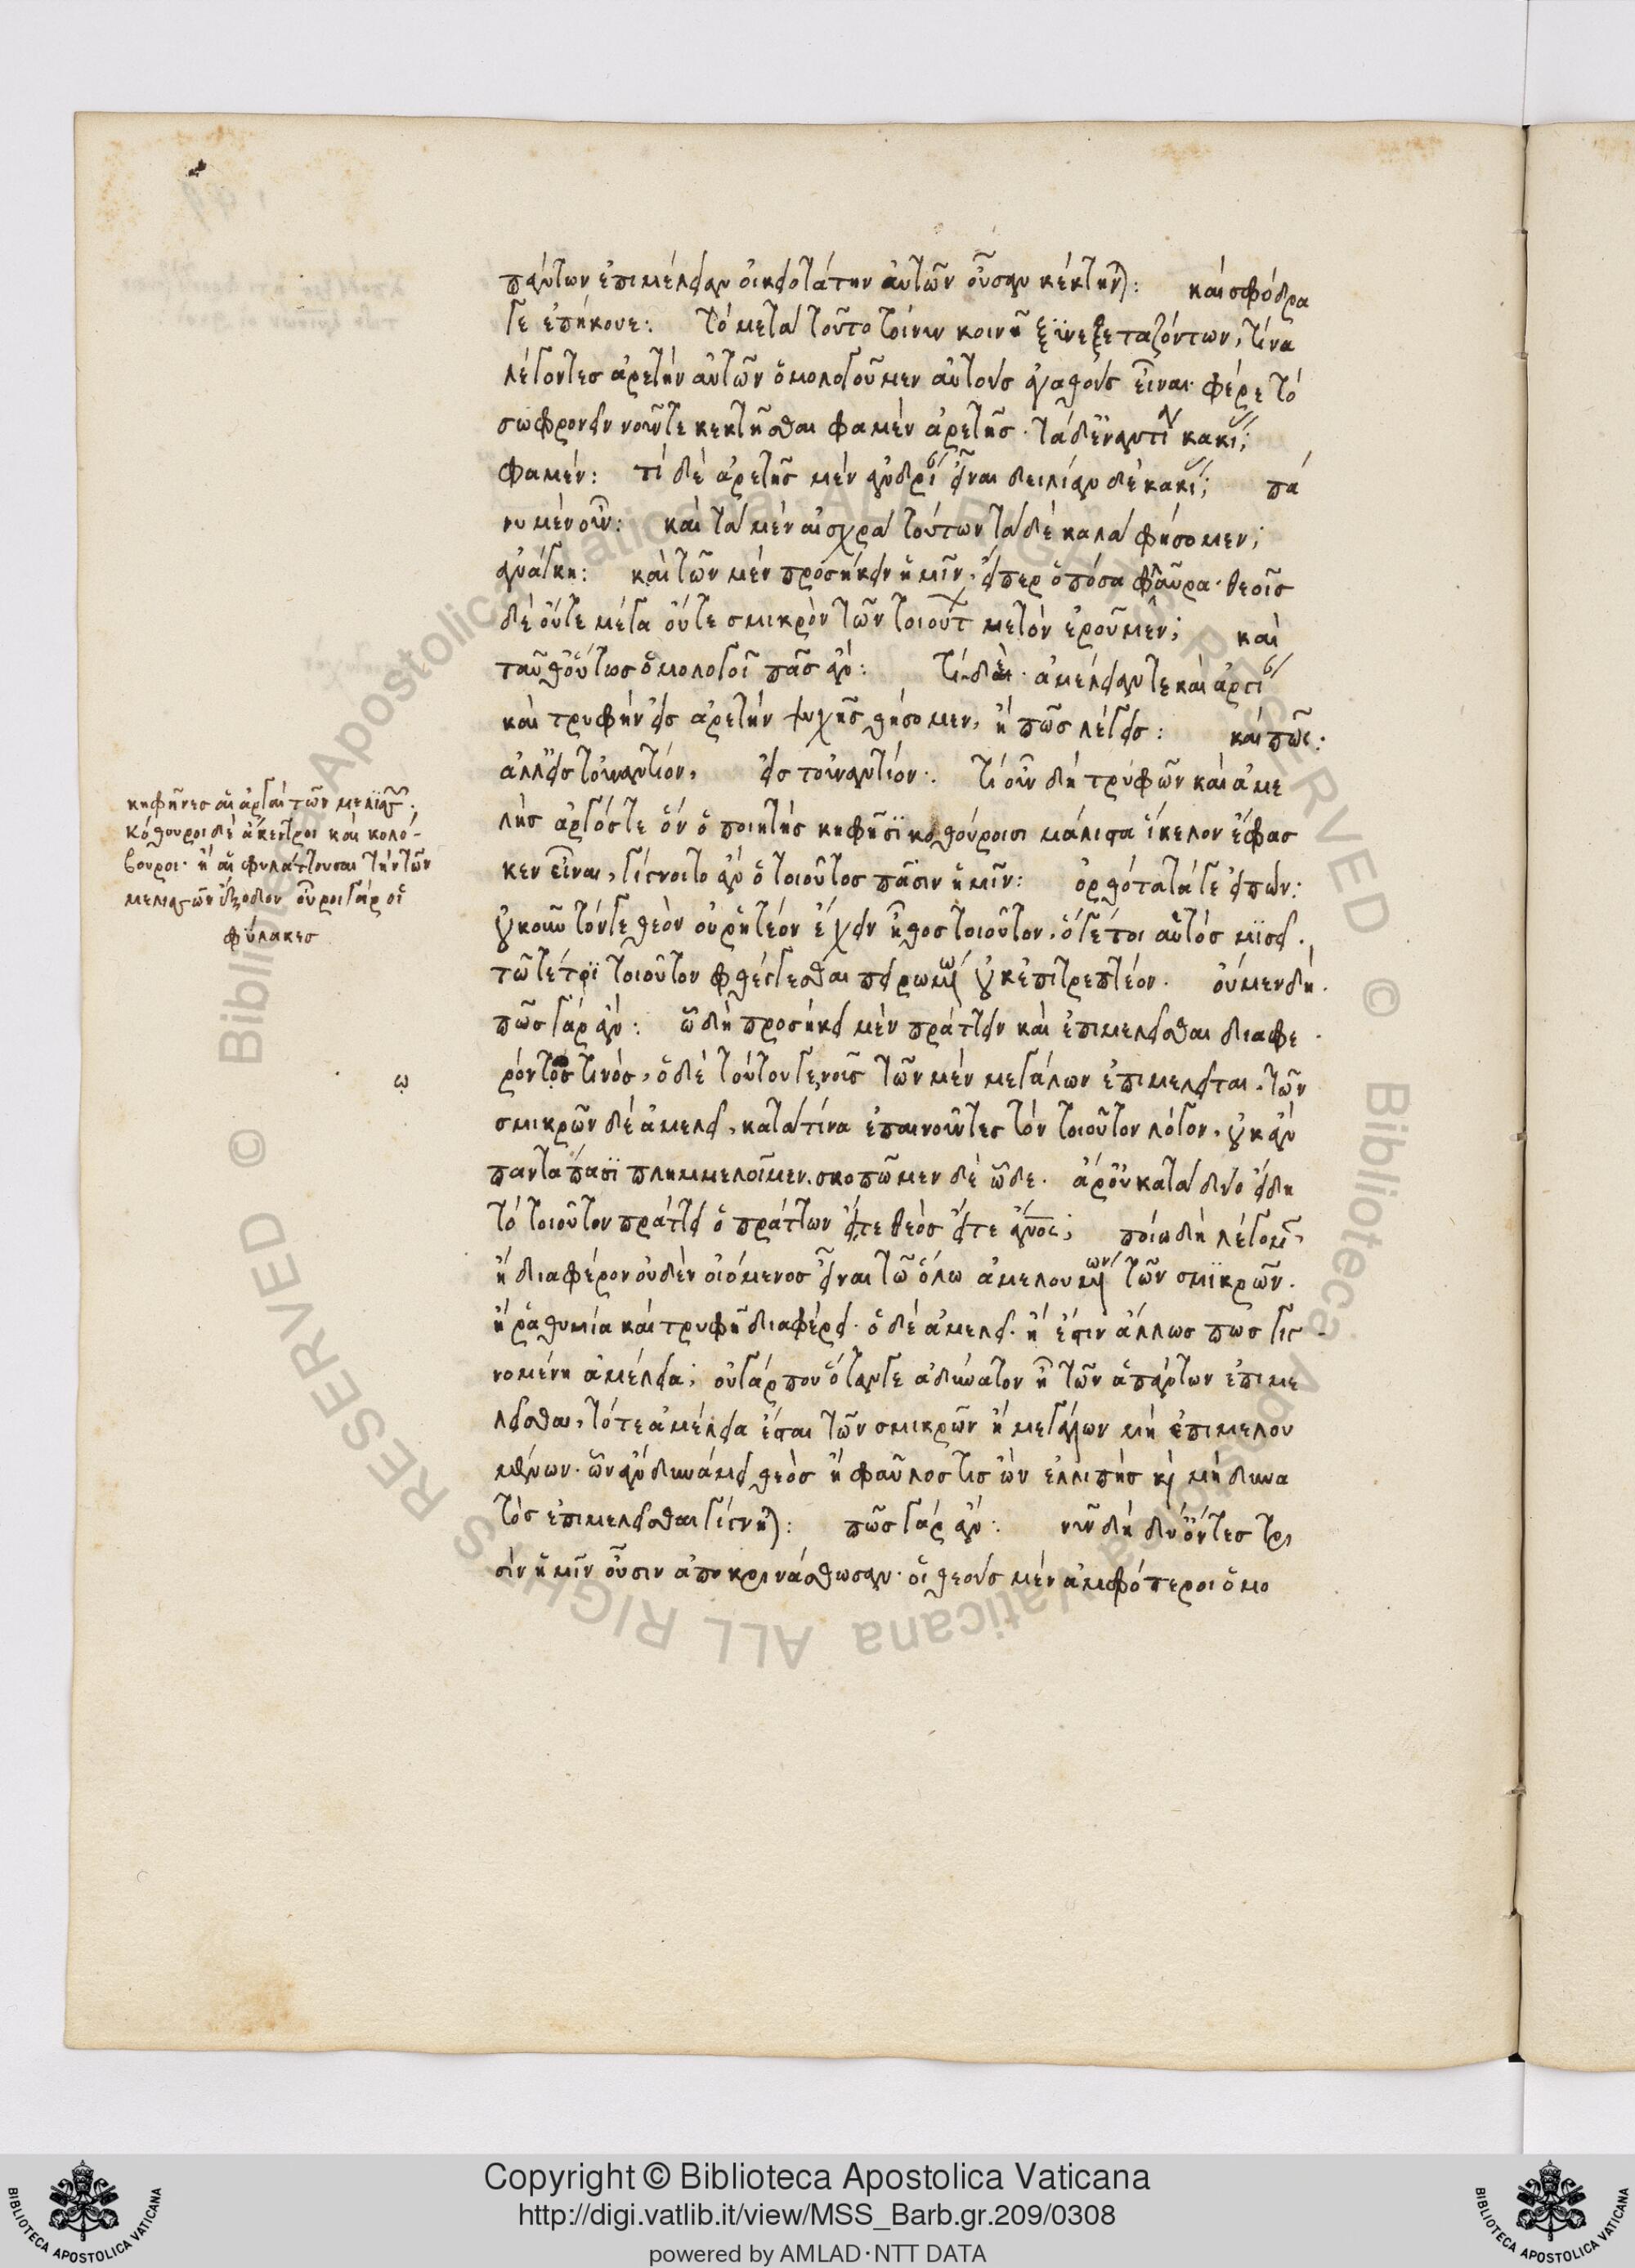 πάντων ἐπιμέλειαν οἰκειοτάτην αὐτῶν οὖσαν κέκτηται: καὶ σφόδρα
γε ἐπήκουε: τὸ μετὰ τοῦτο τοίνυν κοινῆ ξυνεξεταζόντων, τίνα
λέγοντες ἀρετὴν αὐτῶν ὁμολογοῦμεν αὐτοὺς ἀγαθοὺς εἶναι· φέρε τὸ
σωφρονεῖν νοῦν τε κεκτῆσθαι φαμὲν ἀρετῆς· τὰ δ' ἐναντία κακίας;
φαμέν: τί δὲ ἀρετῆς μὲν ἀνδρίαν εἶναι δειλίαν δὲ κακίας; πά
νυ μὲν οὖν: καὶ τὰ μὲν αἰσχρὰ τούτων τὰ δὲ καλὰ φήσομεν;
ἀνάγκη: καὶ τῶν μὲν προσήκειν ἡμῖν, εἴπερ ὁπόσα φλαῦρα· θεοῖς
δὲ οὔτε μέγα οὔτε σμικρὸν τῶν τοιούτων μετὸν ἐροῦμεν; καὶ
ταῦθ' οὕτως ὁμολογοῖ πᾶς ἄν: τί δαί· ἀμέλειάν τε καὶ ἀργίαν
καὶ τρυφὴν εἰς ἀρετὴν ψυχῆς θήσομεν, ἢ πῶς λέγεις: καὶ πῶς:
ἀλλ' εἰς τοὐναντίον, εἰς τοὐναντίον: τί οὖν δὴ τρυφῶν καὶ ἀμε
λὴς ἀργός τε ὃν ὁ ποιητὴς κηφῆσι κοθούροισι μάλιστα ἴκελον ἔφας
κεν εἶναι, γίγνοιτο ἂν ὁ τοιοῦτος πᾶσιν ἡμῖν: ὀρθότατά γε εἰπών:
οὐκοῦν τόν γε θεὸν οὐ ῥητέον ἔχειν ἦθος τοιοῦτον, ὅ γέ τοι αὐτὸς μισεῖ.
τῶ τέ τι τοιοῦτον φθέγγεσθαι πειρωμένω οὐκ ἐπιτρεπτέον. οὐ μὲν δή.
πῶς γὰρ ἄν: ᾧ δὴ προσήκει μὲν πράττειν καὶ ἐπιμελεῖσθαι διαφε
ρόντως τινός, ὁ δὲ τούτου γε νοῦς τῶν μὲν μεγάλων ἐπιμελεῖται, τῶν
σμικρῶν δὲ ἀμελεῖ, κατὰ τίνα ἐπαινοῦντες τὸν τοιοῦτον λόγον, οὐκ ἂν
παντάπασι πλημμελοῖμεν. σκοπῶμεν δὲ ὧδε. ἆρ' οὐ κατὰ δύο εἴδη
τὸ τοιοῦτον πράττει ὁ πράττων εἴτε θεὸς εἴτε ἄνος; ποίω δὴ λέγομεν,
ἢ διαφέρον οὐδὲν οἰόμενος εἶναι τῶ ὅλω ἀμελουμένων τῶν σμικρῶν.
ἢ ῥαθυμία καὶ τρυφῆ διαφέρει· ὁ δὲ ἀμελεῖ. ἢ ἔστιν ἄλλως πως γιγ
νομένη ἀμέλεια; οὐ γάρ που ὅταν γε ἀδύνατον ἦ τῶν ἁπάντων ἐπιμε
λεῖσθαι, τότε ἀμέλεια ἔσται τῶν σμικρῶν ἢ μεγάλων μὴ ἐπιμελου
μένων. ὧν ἂν δυνάμει θεὸς ἢ φαῦλος τις ὢν ἐλλιπὴς καὶ μὴ δυνα
τὸς ἐπιμελεῖσθαι γίγνηται: πῶς γὰρ ἄν: νῦν δὴ δύ' ὄντες τρι
σὶν ἡμῖν οὖσιν ἀποκρινάσθωσαν· οἳ θεοὺς μὲν ἀμφότεροι ὁμο
κηφῆνες αἱ ἀργαὶ τῶν μελισσῶν·
κόθουροι δὲ ἄκεντροι καὶ κολό-
βουροι· ἢ αἱ φυλάττουσαι τὴν τῶν
μελισσῶν ἔξοδον οὖροι γὰρ οἱ
φύλακες
ω
Copyright © Biblioteca Apostolica Vaticana
http://digi.vatlib.it/view/MSS_Barb.gr.209/0308
powered by AMLAD·NTT DATA
BIBLIOTECA APOSTOLICA VATICANA
BIBLIOTECA APOSTOLICA VATICANA
© Biblioteca Apostolica Vaticana ALL RIGHTS RESERVED © Biblioteca Apostolica Vaticana ALL RIGHTS RESERVED